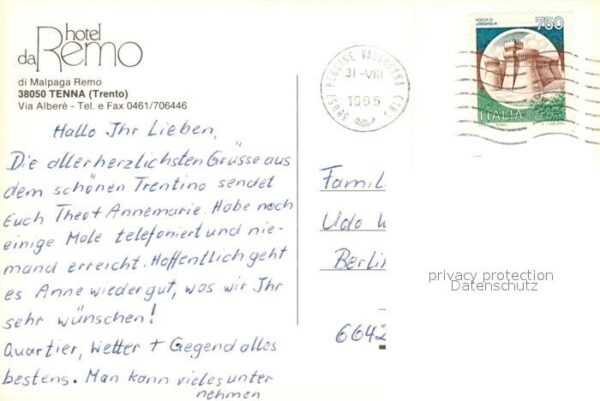 hotel
da Remo
di Malpaga Remo
38050 TENNA (Trento)
Via Alberè - Tel. e Fax 0461/706446
Hallo Ihr Lieben,
Die allerherzlichsten Grüsse aus
dem schönen Trentino sendet
Euch Theo + Annemarie. Habe noch
einige Mole telefoniert und nie-
mand erreicht. Hoffentlich geht
es Anne wieder gut, was wir Ihr
sehr wünschen!
Quartier, Wetter + Gegend alles
bestens. Man kann vieles unter
nehmen
PERGINE VALSUGANA (TN)
31-VIII
1995
ROCCA DI
URBISAGLIA
750
ITALIA
Famil
Udo
Berlin
6642
privacy protection
Datenschutz